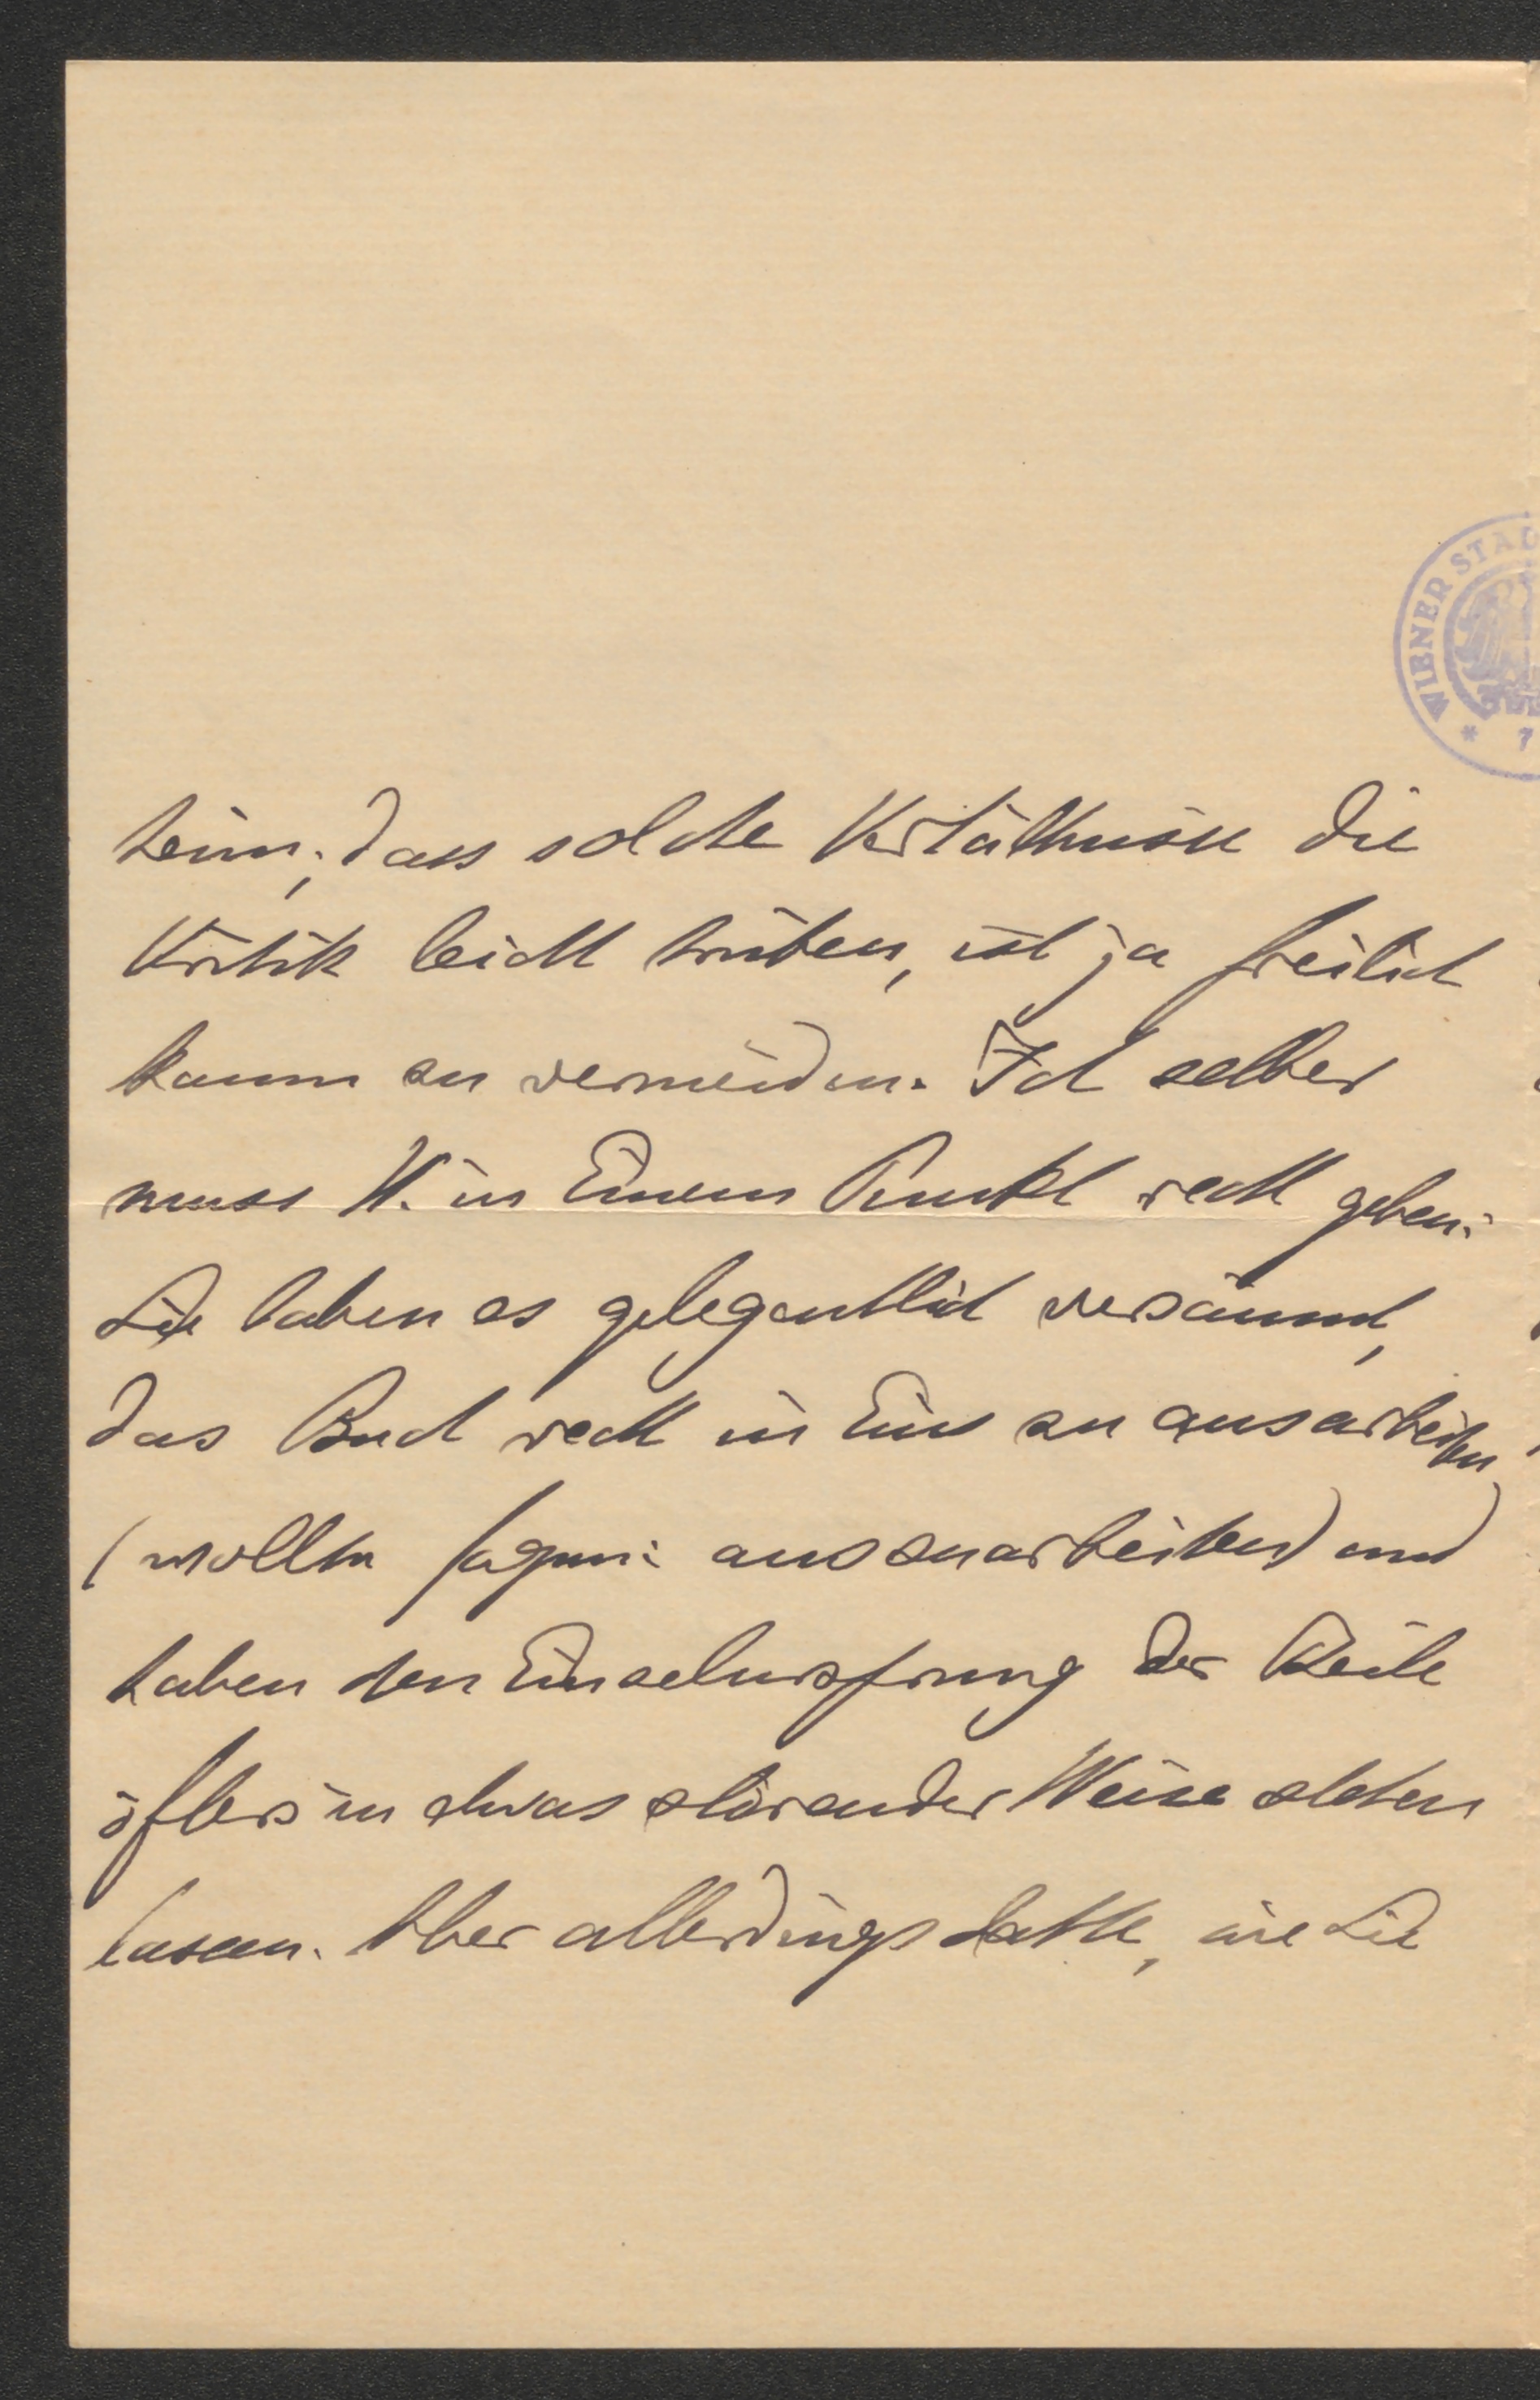 WIENER STAD
* 7
heim; dass solche Verhältnisse die
Kritik leicht trüben, ist ja freilich
kaum zu vermeiden. Ich selber
muss W. in Einem Punkt recht geben:
Sie haben es gelegentlich versäumt,
das Buch recht in Eins zu ausarbeiten
(wollte sagen: auszuarbeiten) und
haben den Einzelursprung der Teile
öfters in etwas störender Weise stehen
lassen. Aber allerdings hätte, wie Sie